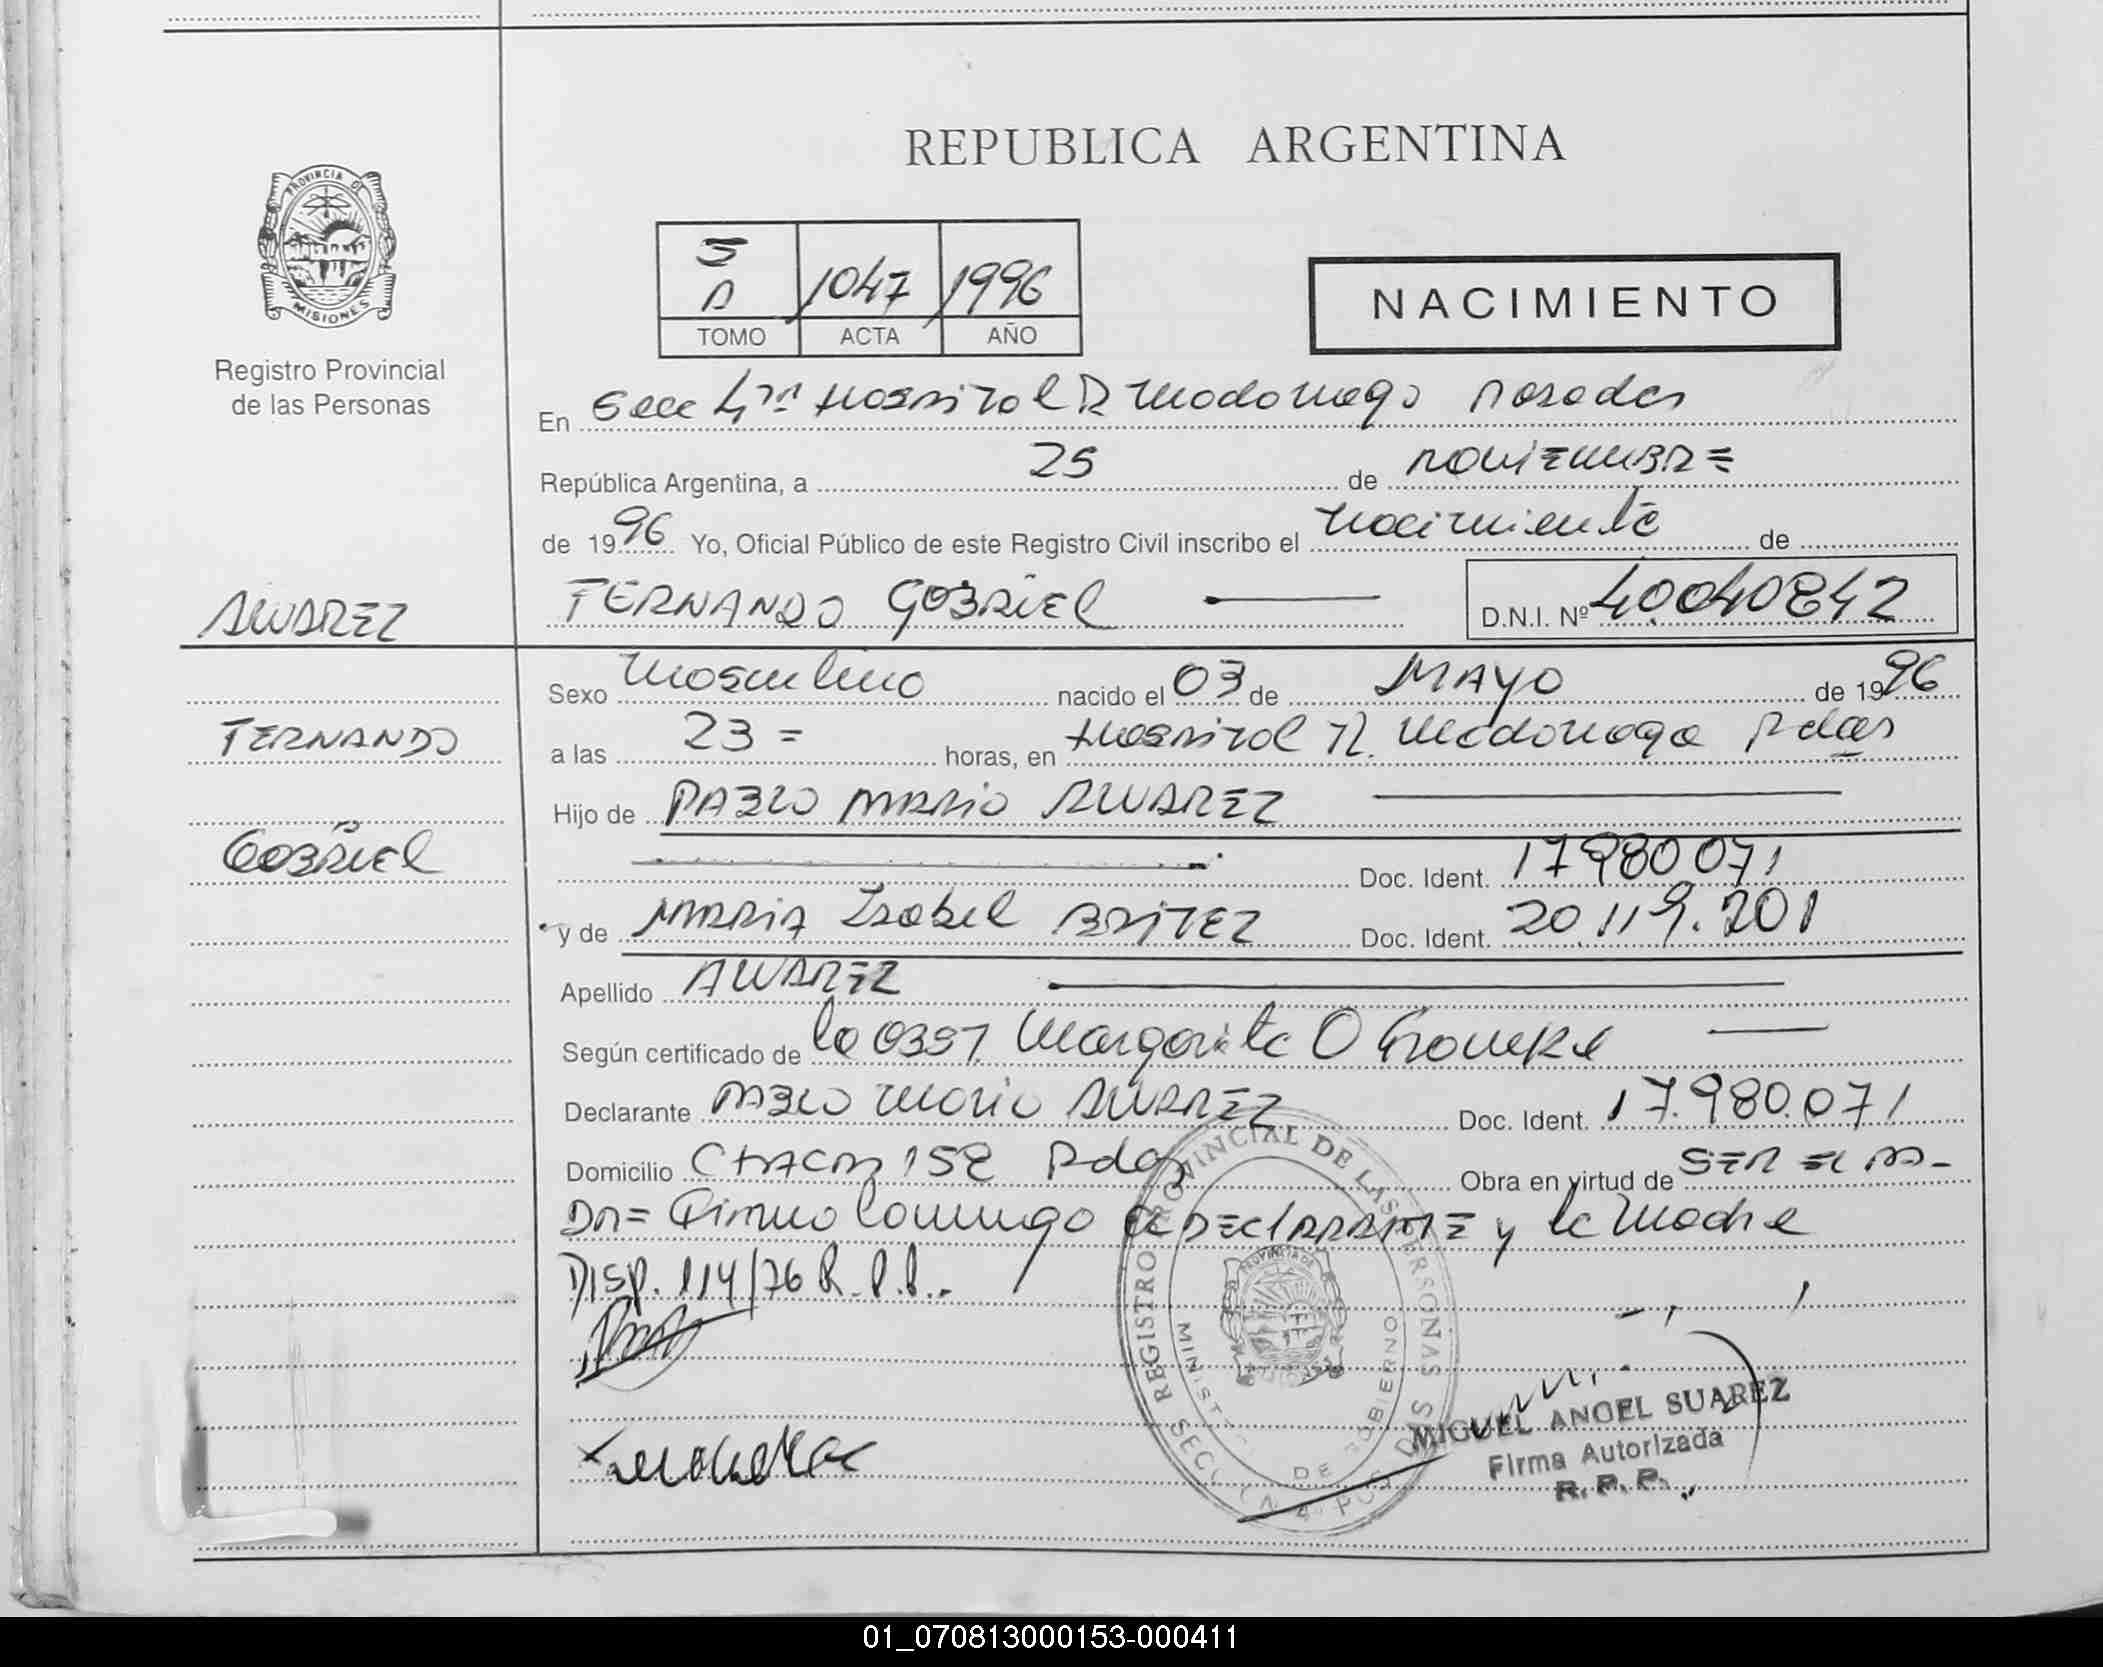 REPUBLICA ARGENTINA
PROVINCIA DE
MISIONES
Registro Provincial
de las Personas
5
A
1047
1996
TOMO
ACTA
AÑO
NACIMIENTO
En Secc 4ta Hospital R Madonaga Posadas
República Argentina, a 25 de NOVIEMBRE
de 1996 Yo, Oficial Público de este Registro Civil inscribo el Nacimiento de
ALVAREZ
FERNANDO GABRIEL
D.N.I. Nº 40.040842
Sexo Masculino nacido el 03 de MAYO de 1996
FERNANDO
a las 23= horas, en Hospital R. Madonaga Pdas
Hijo de PABLO MARIO ALVAREZ
GABRIEL
Doc. Ident. 17980071
y de MARIA Isabel BRITEZ Doc. Ident. 20.119.201
Apellido ALVAREZ
Según certificado de la Margarita O
Declarante PABLO Mario ALVAREZ Doc. Ident. 17.980.071
Domicilio CHACRA 152 Pdas Obra en virtud de SER EL PA-
DRE Firman Conmigo el DECLARANTE y la Madre
DISP. 114/76 R.P.P.
REGISTRO PROVINCIAL DE LAS PERSONAS
MINISTERIO DE GOBIERNO
MIGUEL ANGEL SUAREZ
Firma Autorizada
R. P. P.
01_070813000153-000411